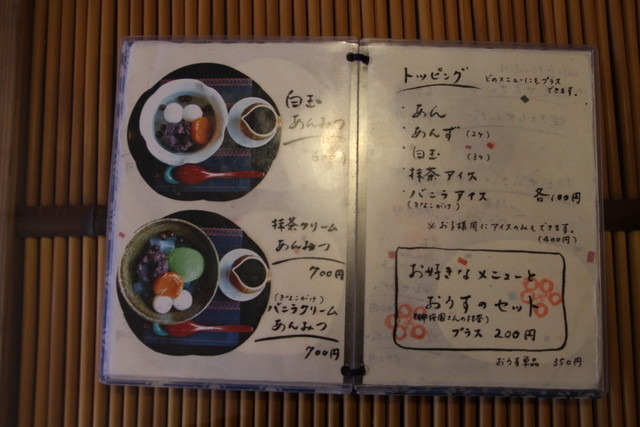 白玉
あんみつ
抹茶クリーム
あんみつ
700円
(きなこがけ)
バニラクリーム
あんみつ
700円
トッピング
どのメニューにもプラス
できます。
・あん
・あんず(2ケ)
・白玉(3ケ)
・抹茶アイス
・バニラアイス 各100円
(きなこがけ)
※お子様用にアイスのみもできます。
(400円)
お好きなメニューと
おうすのセット
プラス 200円
おうす単品 350円